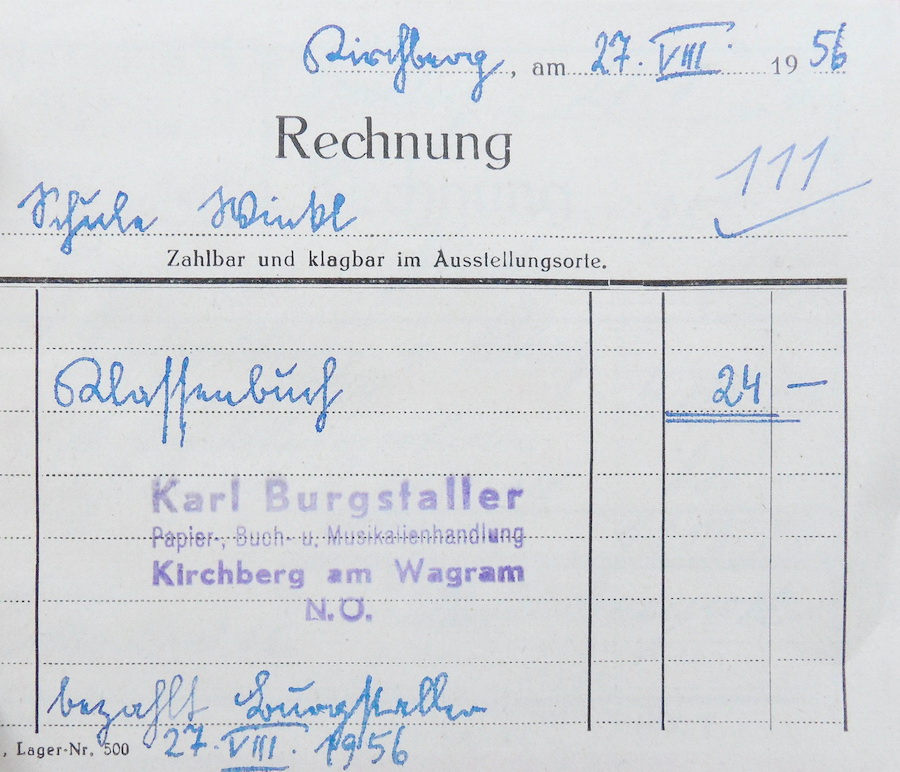 Kirchberg, am 27. VIII. 1956
Rechnung
111
Schule Winkl
Zahlbar und klagbar im Ausstellungsorte.
Klassenbuch 24 —
Karl Burgstaller
Papier-, Buch- u. Musikalienhandlung
Kirchberg am Wagram
N.Ö.
bezahlt Burgstaller
, Lager-Nr. 500 27. VIII. 1956